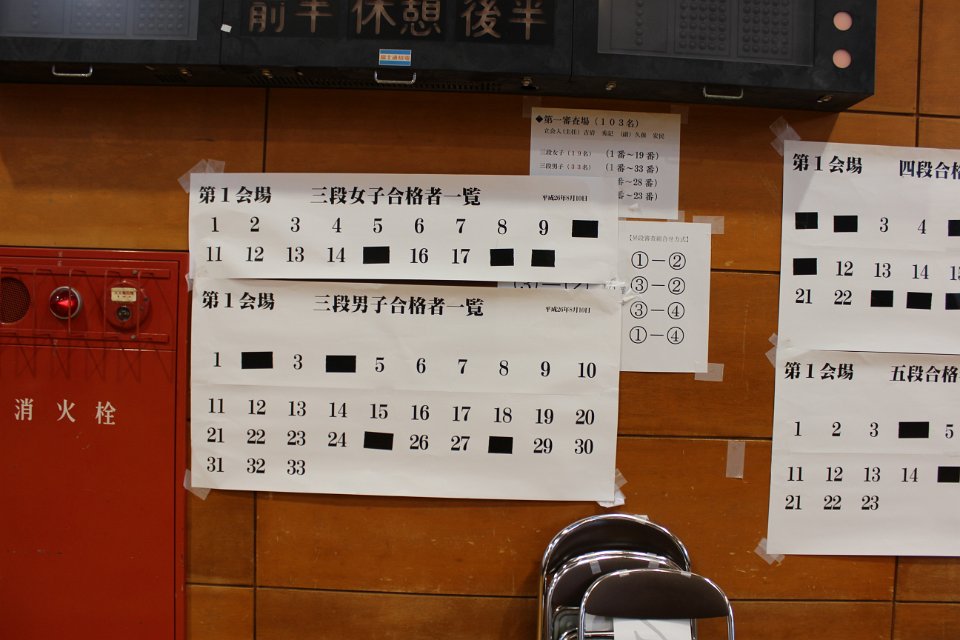 前半 休憩 後半
◆第一審査場(103名)
三段女子(19名) (1番~19番)
三段男子(33名) (1番~33番)
番~28番)
番~23番)
第1会場 三段女子合格者一覧 平成26年8月10日
1 2 3 4 5 6 7 8 9
11 12 13 14 16 17
第1会場 三段男子合格者一覧 平成26年8月10日
1 3 5 6 7 8 9 10
11 12 13 14 15 16 17 18 19 20
21 22 23 24 26 27 29 30
31 32 33
①-②
③-②
③-④
①-④
第1会場 四段合格
3 4
12 13 14
21 22
第1会場 五段合格
1 2 3 5
11 12 13 14
21 22 23
消火栓